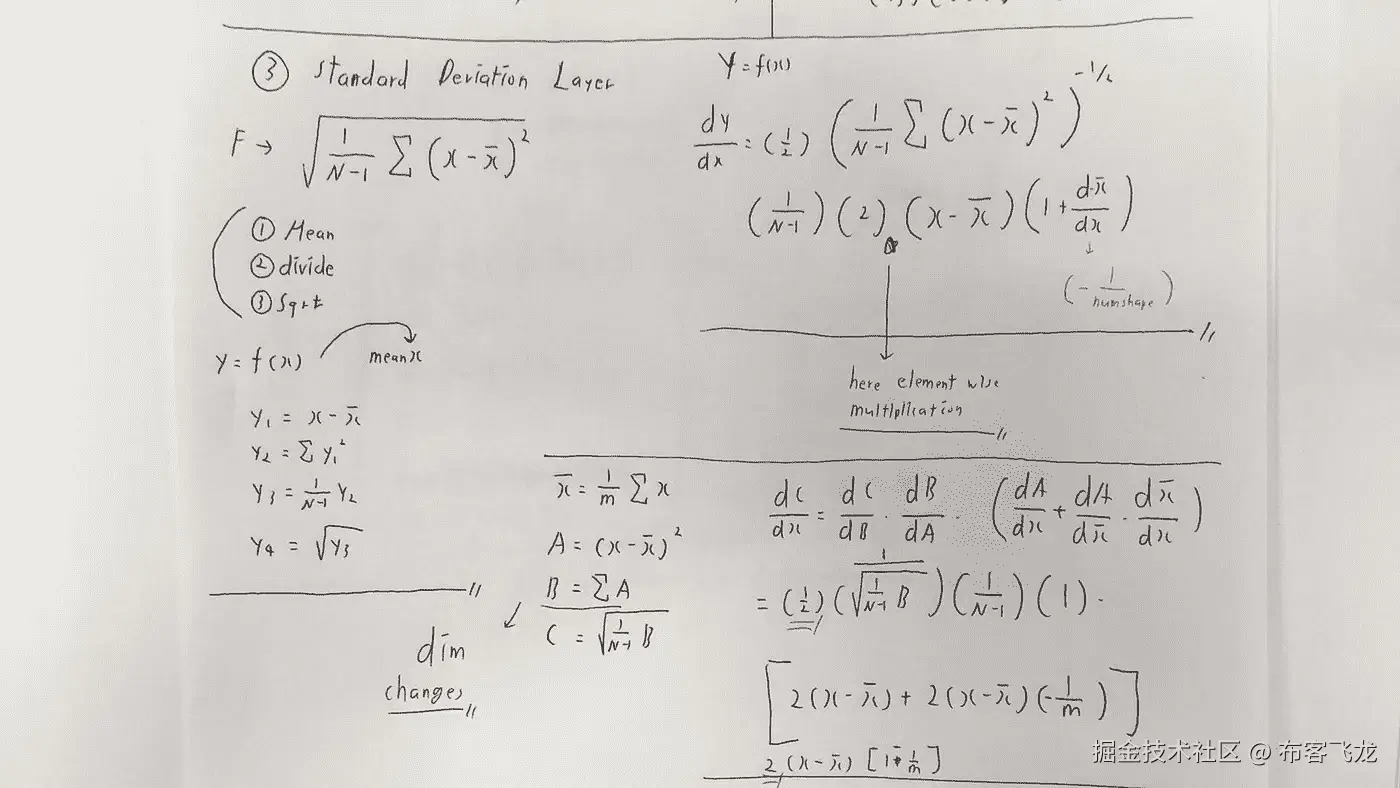 ③ Standard Deviation Layer
F → √(1/(N-1) Σ (x - x̄)²)
① Mean
② divide
③ Sqrt
Y = f(x)
mean x
Y₁ = x - x̄
Y₂ = Σ Y₁²
Y₃ = 1/(N-1) Y₂
Y₄ = √Y₃
dim
changes
x̄ = 1/m Σ x
A = (x - x̄)²
B = Σ A
C = √(1/(N-1) B)
Y = f(x)
dy/dx = (1/2) (1/(N-1) Σ (x - x̄)²)^(-1/2)
(1/(N-1)) (2) (x - x̄) (1 + dx̄/dx)
↓
(- 1/numshape)
here element wise
multiplication
dC/dx = dC/dB · dB/dA · (dA/dx + dA/dx̄ · dx̄/dx)
= (1/2) (1/√(1/(N-1) B)) (1/(N-1)) (1) ·
[2(x - x̄) + 2(x - x̄)(-1/m)]
2(x - x̄) [1 - 1/m]
掘金技术社区 @ 布客飞龙